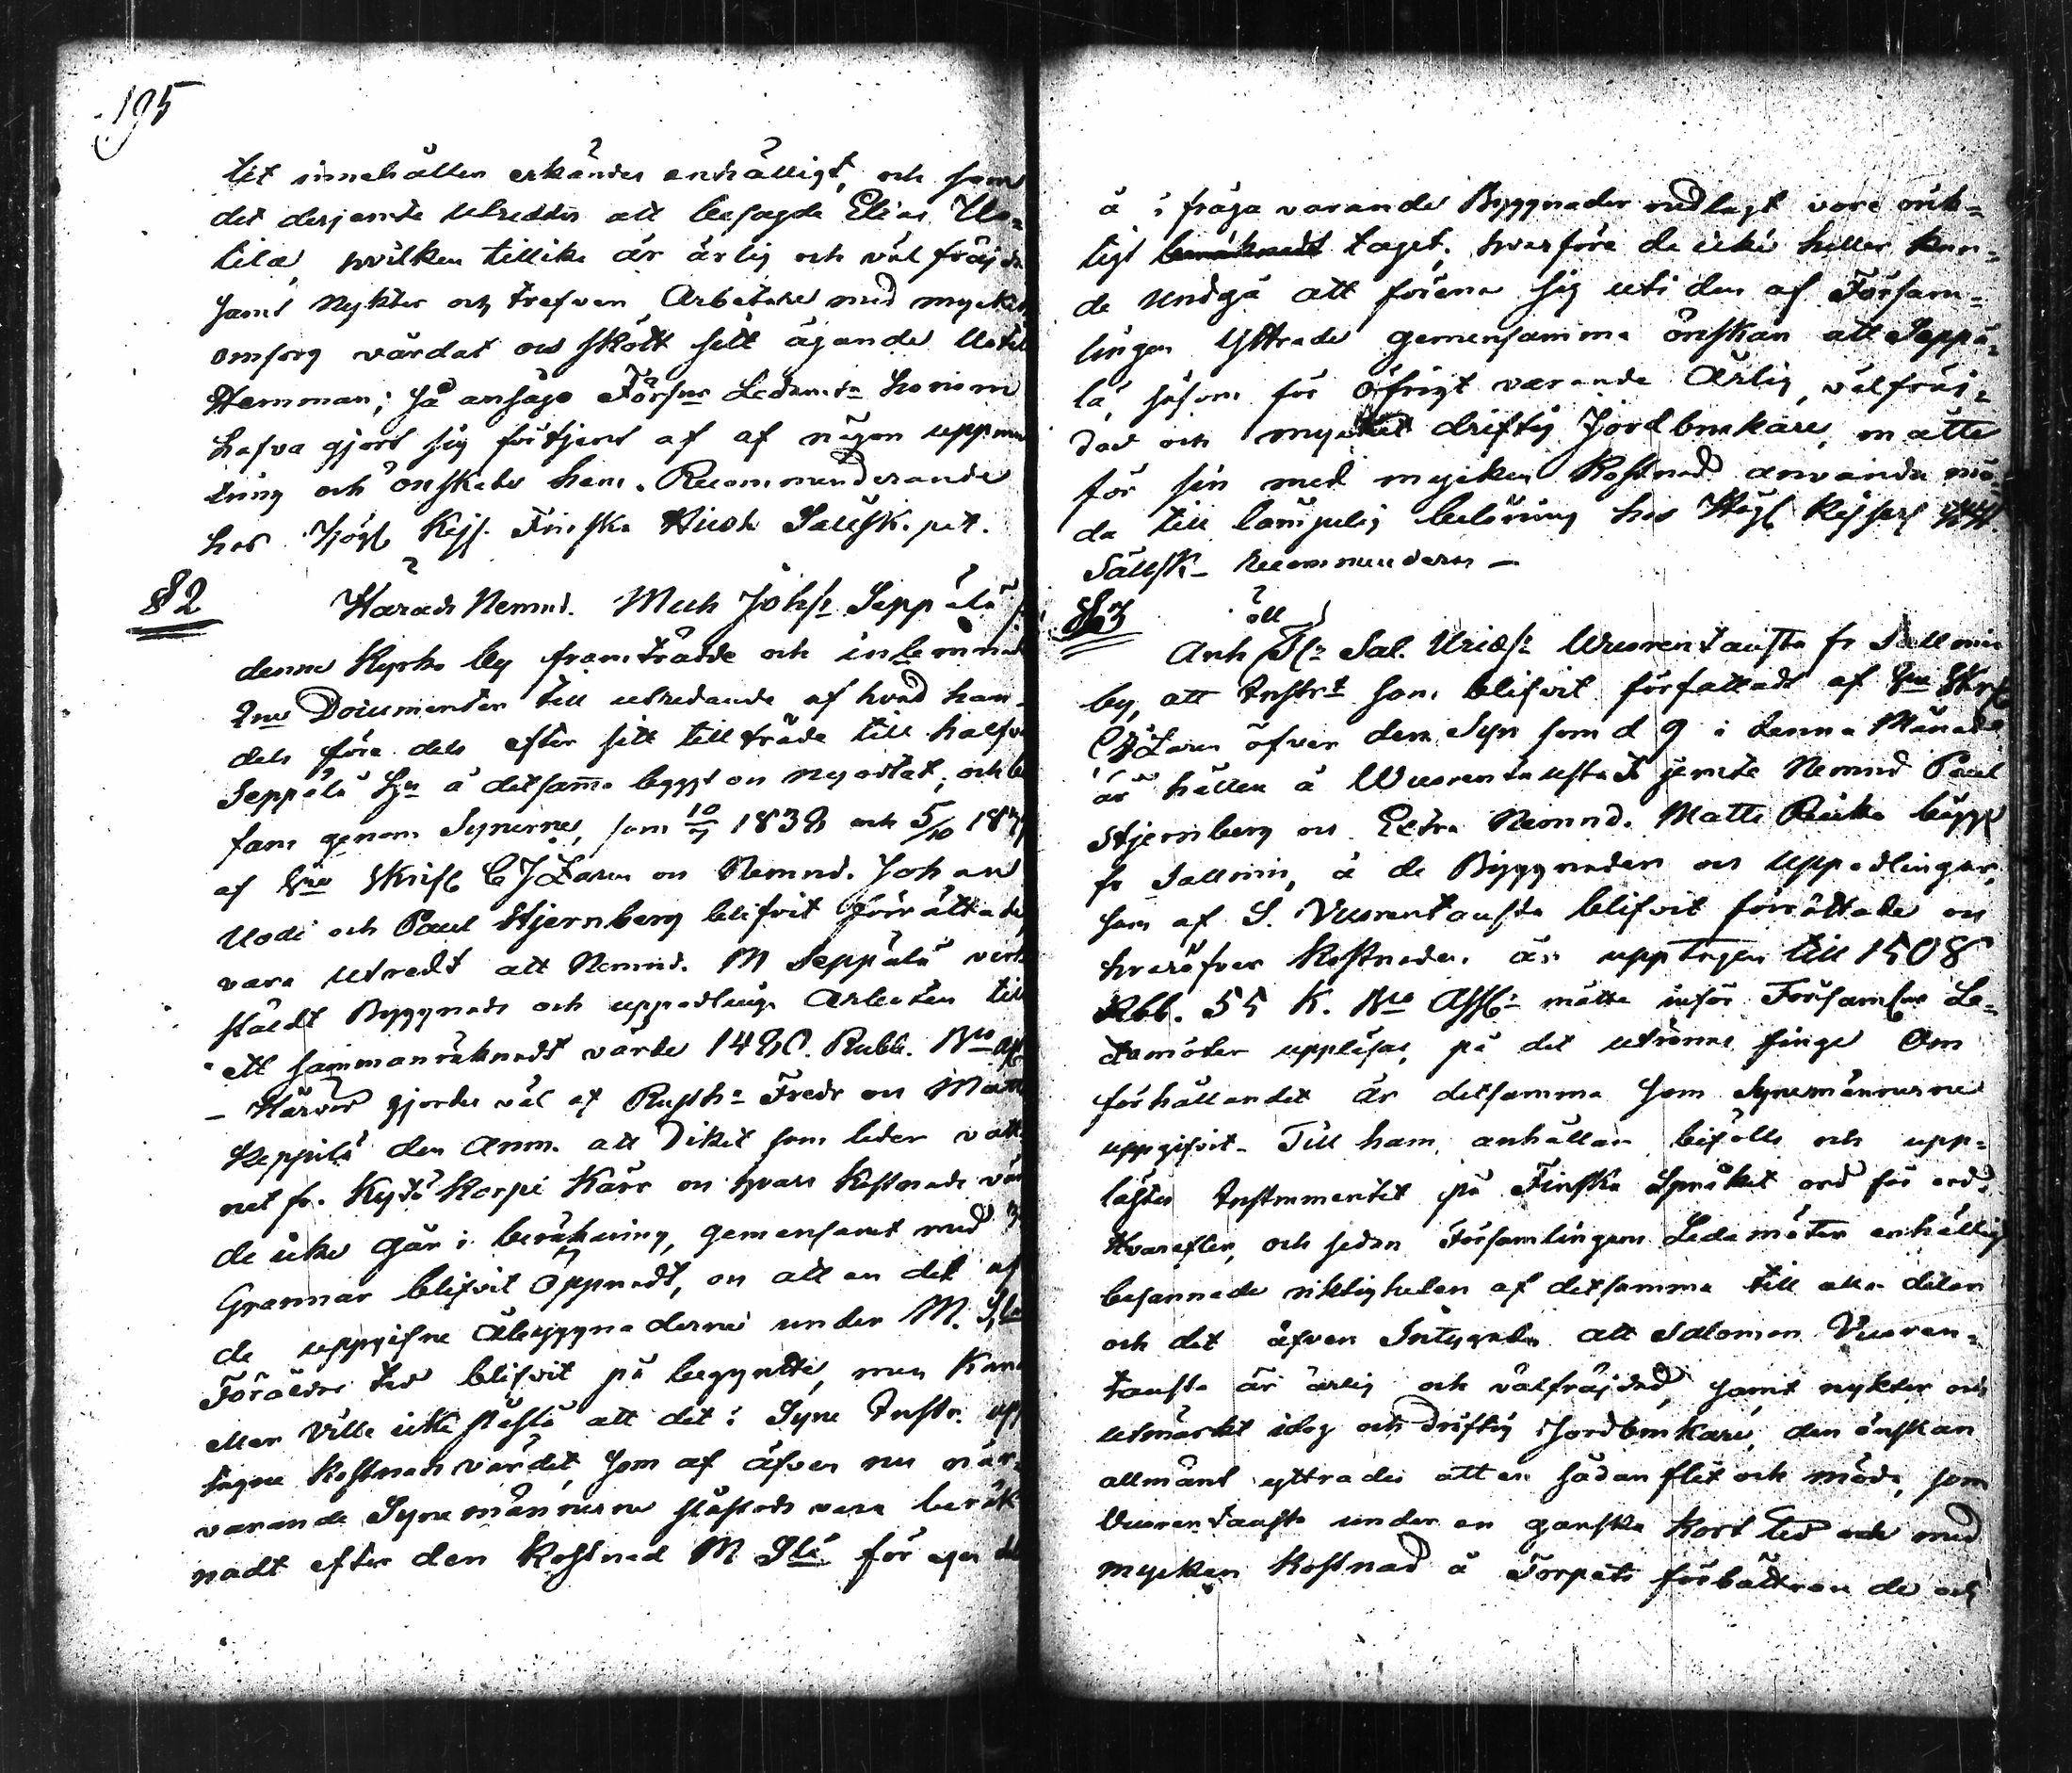 195
tet innehållen erkändes enhälligt, och som
det derjemte utreddes att besagde Elias Uo=
tila, hvilken tillika är ärlig och väl fräjda
samt nykter och trefven Arbetare med mycken
omsorg vårdat och skött sitt ägande Uotil
Hemman; så ansågo Förs:ne Ledam:tr honom
hafva gjort sig förtjent af af någon uppmun
tring och önskade hans Recommenderande
hos Kejs. Finska Hush Sällsk.
§2
Härads Nemnd. Math Johs:n Seppälä
denne Kyrko by framträdde och inlemnade
2ne Documenter till utredande af hvad han
dels före dels efter sitt tillträde till halfva
Seppälä Hn å detsamma byggt och nyodlat; och be
fans genom Synerne, som 10/7 1838 och 5/10 18
af C J Laren och Nemnd. Johan
Uodi och Paul Stjernberg blifvit förrättade
vara utredt att Nemnd. M Seppälä verk
ställt Byggnads och uppodlings Arbeten till
ett sammanräknadt värde 1480. Rubl. Bco ass
– Härvid gjordes väl af Rusth:n Fredr och Matts
Keppilä den Anm. att Diket som leder vatt
net fr. Kytö Korpi Kärr och hvars kostnads vär
de icke går i beräkning, gemensamt med
Grannar blifvit öppnadt, och att en del af
de uppgifne Åbyggnaderne under M. Slä
Föräldrs tid blifvit på begyndte, men kunde
eller ville icke påstå att det i Syne Instr. upp
tagne kostnads värdet, som af äfven nu när=
varande Synemännerne påstods vara beräk
nadt efter den kostnad M Slä för egen del
å i fråga varande Byggnader nedlagt vore orik=
tigt taget, hvarföre de icke heller kun=
de undgå att förena sig uti den af Försam=
lingen yttrade gemensamma önskan att Seppä=
lä, såsom för öfrigt varande Ärlig, välfräj=
dad och mycket driftig Jordbrukare, måtte
för sin med mycken kostnad använda mö=
da till lämpelig belöning hos Kejserl
Sällsk– recommenderas –
§3
Anh Sal. Uriæs:n Wuorentausta fr Sallmin
by, att Instr:t som blifvit författadt af
C J Laren öfver den Syn som d 9 i denna Månad
är hållen å Wuorentausta T jemte Nemnd Paul
Stjernberg och Extra Nemnd. Matts begge
fr Sallmin, å de Byggnader och uppodlingar,
som af S. Vuorentausta blifvit förrättade och
hvaröfver kostnaden är upptagen till 1508
Rbl. 55 K. Bco Ass:r måtte inför Församl:ns Le=
damöter uppläsas, på det utrönas finge Om
förhållandet är detsamma som Synemännerne
uppgifvit. Till hans anhållan bifölls och upp=
lästes Instrumentet på Finska Språket ord för ord.
Hvarefter, och sedan Församlingens Ledamöter enhälligt
besannade riktigheten af detsamma till alla delar
och det äfven intygades att Salomon Vuoren=
tausta är ärlig och välfräjdad, samt nykter och
utmärkt idog och driftig Jordbrukare, den önskan
allmänt yttrades att en sådan flit och möda, som
Vuorentausta under en ganska kort tid och med
mycken kostnad å Torpets förbättrande och